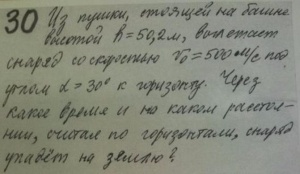 30 Из пушки, стоящей на башне
высотой h = 50,2 м, вылетает
снаряд со скоростью v₀ = 500 м/с под
углом α = 30° к горизонту. Через
какое время и на каком расстоя-
нии, считая по горизонтали, снаряд
упадёт на землю?